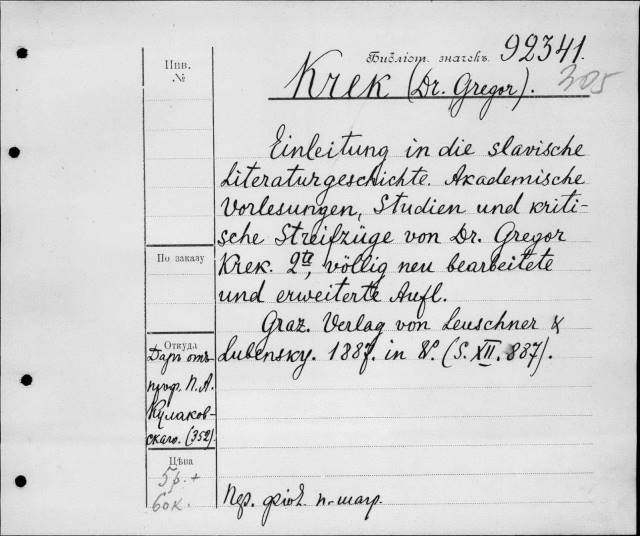 Библіот. значекъ. 92341.
305
Krek (Dr. Gregor).
Einleitung in die slavische
Literaturgeschichte. Akademische
Vorlesungen, Studien und kriti-
sche Streifzüge von Dr. Gregor
Krek. 2te, völlig neu bearbeitete
und erweiterte Aufl.
Graz. Verlag von Leuschner &
Lubensky. 1887. in 8º. (S. XII. 887).
Инв.
№
По заказу
Откуда
Даръ отъ
проф. П. А.
Кулаков-
скаго. (352)
Цѣна
5р. +
60к.